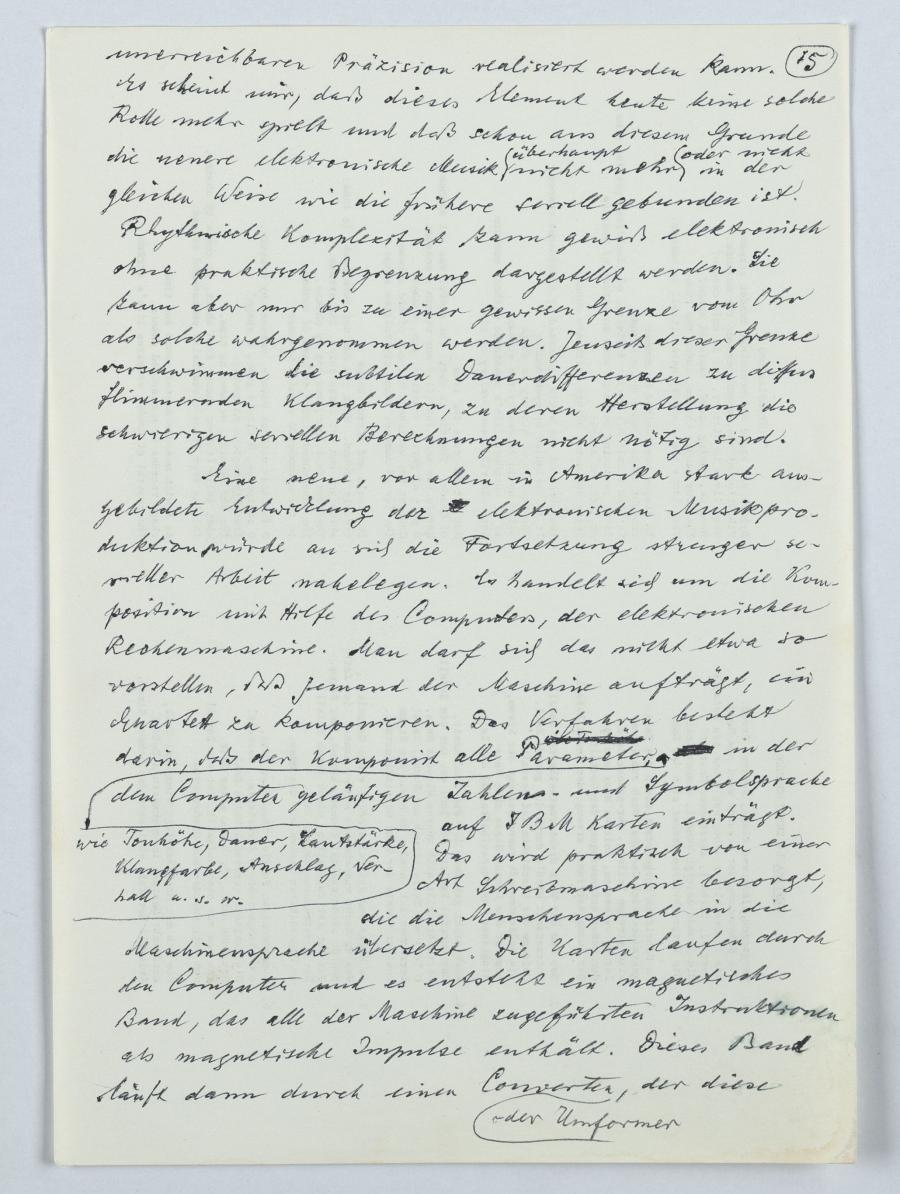 15
unerreichbaren Präzision realisiert werden kann.
Es scheint mir, daß dieses Element heute keine solche
Rolle mehr spielt und daß schon aus diesem Grunde
die neuere elektronische Musik (überhaupt nicht mehr) (oder nicht in der
gleichen Weise wie die frühere seriell gebunden ist.
Rhythmische Komplexität kann gewiß elektronisch
ohne praktische Begrenzung dargestellt werden. Sie
kann aber nur bis zu einer gewissen Grenze vom Ohr
als solche wahrgenommen werden. Jenseits dieser Grenze
verschwimmen die subtilen Dauerdifferenzen zu diffus
flimmernden Klangbildern, zu deren Herstellung die
schwierigen seriellen Berechnungen nicht nötig sind.
Eine neue, vor allem in Amerika stark aus-
gebildete Entwicklung der elektronischen Musikpro-
duktion würde an sich die Fortsetzung strenger se-
rieller Arbeit nahelegen. Es handelt sich um die Kom-
position mit Hilfe des Computers, der elektronischen
Rechenmaschine. Man darf sich das nicht etwa so
vorstellen, daß jemand der Maschine aufträgt, ein
Quartett zu komponieren. Das Verfahren besteht
darin, daß der Komponist alle Parameter, in der
dem Computer geläufigen Zahlen- und Symbolsprache
auf IBM Karten einträgt.
wie Tonhöhe, Dauer, Lautstärke,
Klangfarbe, Anschlag, Ver-
hall u. s. w.
Das wird praktisch von einer
Art Schreibmaschine besorgt,
die die Menschensprache in die
Maschinensprache übersetzt. Die Karten laufen durch
den Computer und es entsteht ein magnetisches
Band, das alle der Maschine zugeführten Instruktionen
als magnetische Impulse enthält. Dieses Band
läuft dann durch einen Converter, der diese
oder Umformer